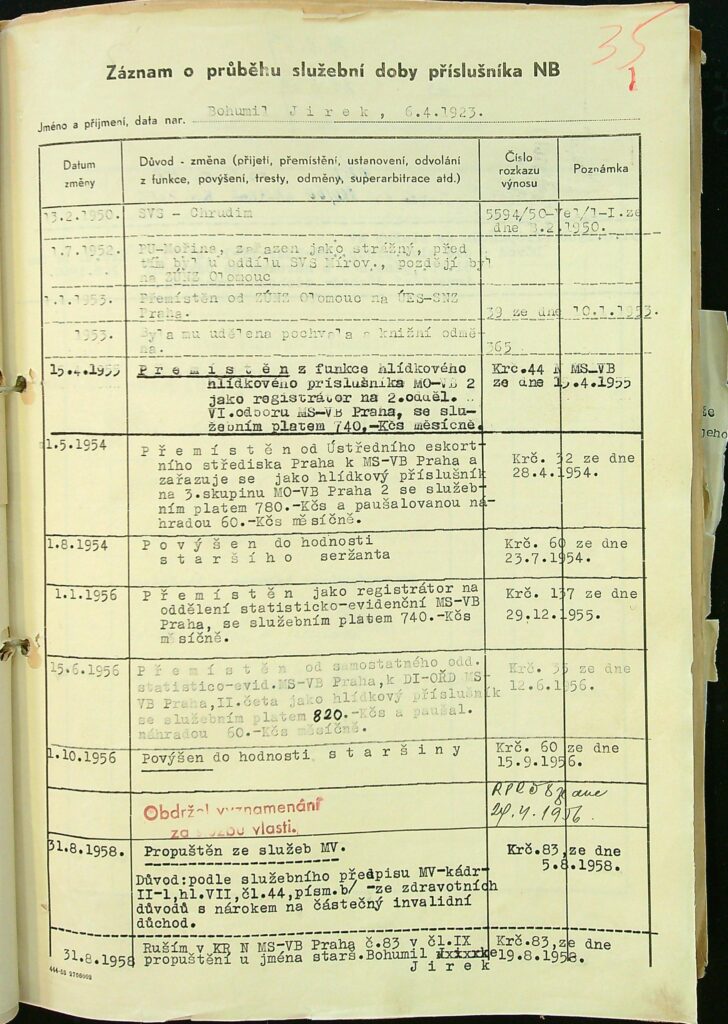 35
1
Záznam o průběhu služební doby příslušníka NB
Jméno a příjmení, data nar. Bohumil J i r e k , 6.4.1923.
Datum změny
Důvod - změna (přijetí, přemístění, ustanovení, odvolání
z funkce, povýšení, tresty, odměny, superarbitrace atd.)
Číslo rozkazu výnosu
Poznámka
13.2.1950. SVS - Chrudim 5594/50-Vel/1-I.ze
dne 8.2.1950.
1.7.1952. PÚ-Mořina, zařazen jako strážný, před
tím byl u oddílu SVS Mírov., pozdějí byl
na ZÚNZ Olomouc
1.1.1953. Přemístěn od ZÚNZ Olomouc na ÚES-SNZ
Praha. 39 ze dne 10.1.1953.
1953. Byla mu udělena pochvala a knižní odmě-
na. 365
15.4.1955 P ř e m í s t ě n z funkce hlídkového Krč.44 N MS-VB
hlídkového príslušníka MO-VB 2 ze dne 15.4.1955
jako registrátor na 2.odděl.
VI.odboru MS-VB Praha, se slu-
žebním platem 740,-Kčs měsíčně.
1.5.1954 P ř e m í s t ě n od Ústředního eskort-
ního střediska Praha k MS-VB Praha a Krč. 32 ze dne
zařazuje se jako hlídkový příslušník 28.4.1954.
na 3.skupinu MO-VB Praha 2 se služeb-
ním platem 780.-Kčs a paušalovanou ná-
hradou 60.-Kčs měsíčně.
1.8.1954 P o v ý š e n do hodnosti Krč. 60 ze dne
s t a r š í h o seržanta 23.7.1954.
1.1.1956 P ř e m í s t ě n jako registrátor na Krč. 137 ze dne
oddělení statisticko-evidenční MS-VB
Praha, se služebním platem 740.-Kčs 29.12.1955.
měsíčně.
15.6.1956 P ř e m í s t ě n od samostatného odd. Krč. 35 ze dne
statistico-evid.MS-VB Praha,k DI-OŘD MS-
VB Praha,II.četa jako hlídkový příslušník 12.6.1956.
se služebním platem 820.-Kčs a paušal.
náhradou 60.-Kčs měsíčně.
1.10.1956 Povýšen do hodnosti s t a r š i n y Krč. 60 ze dne
15.9.1956.
Obdržel vyznamenání
za službu vlasti.
dne
1956
31.8.1958. Propuštěn ze služeb MV. Krč.83,ze dne
5.8.1958.
Důvod:podle služebního předpisu MV-kádr-
II-1,hl.VII,čl.44,písm.b/ -ze zdravotních
důvodů s nárokem na částečný invalidní
důchod.
31.8.1958 Ruším v KR N MS-VB Praha č.83 v čl.IX Krč.83,ze dne
propuštění u jména starš.Bohumil 19.8.1958.
J i r e k
še
jeho